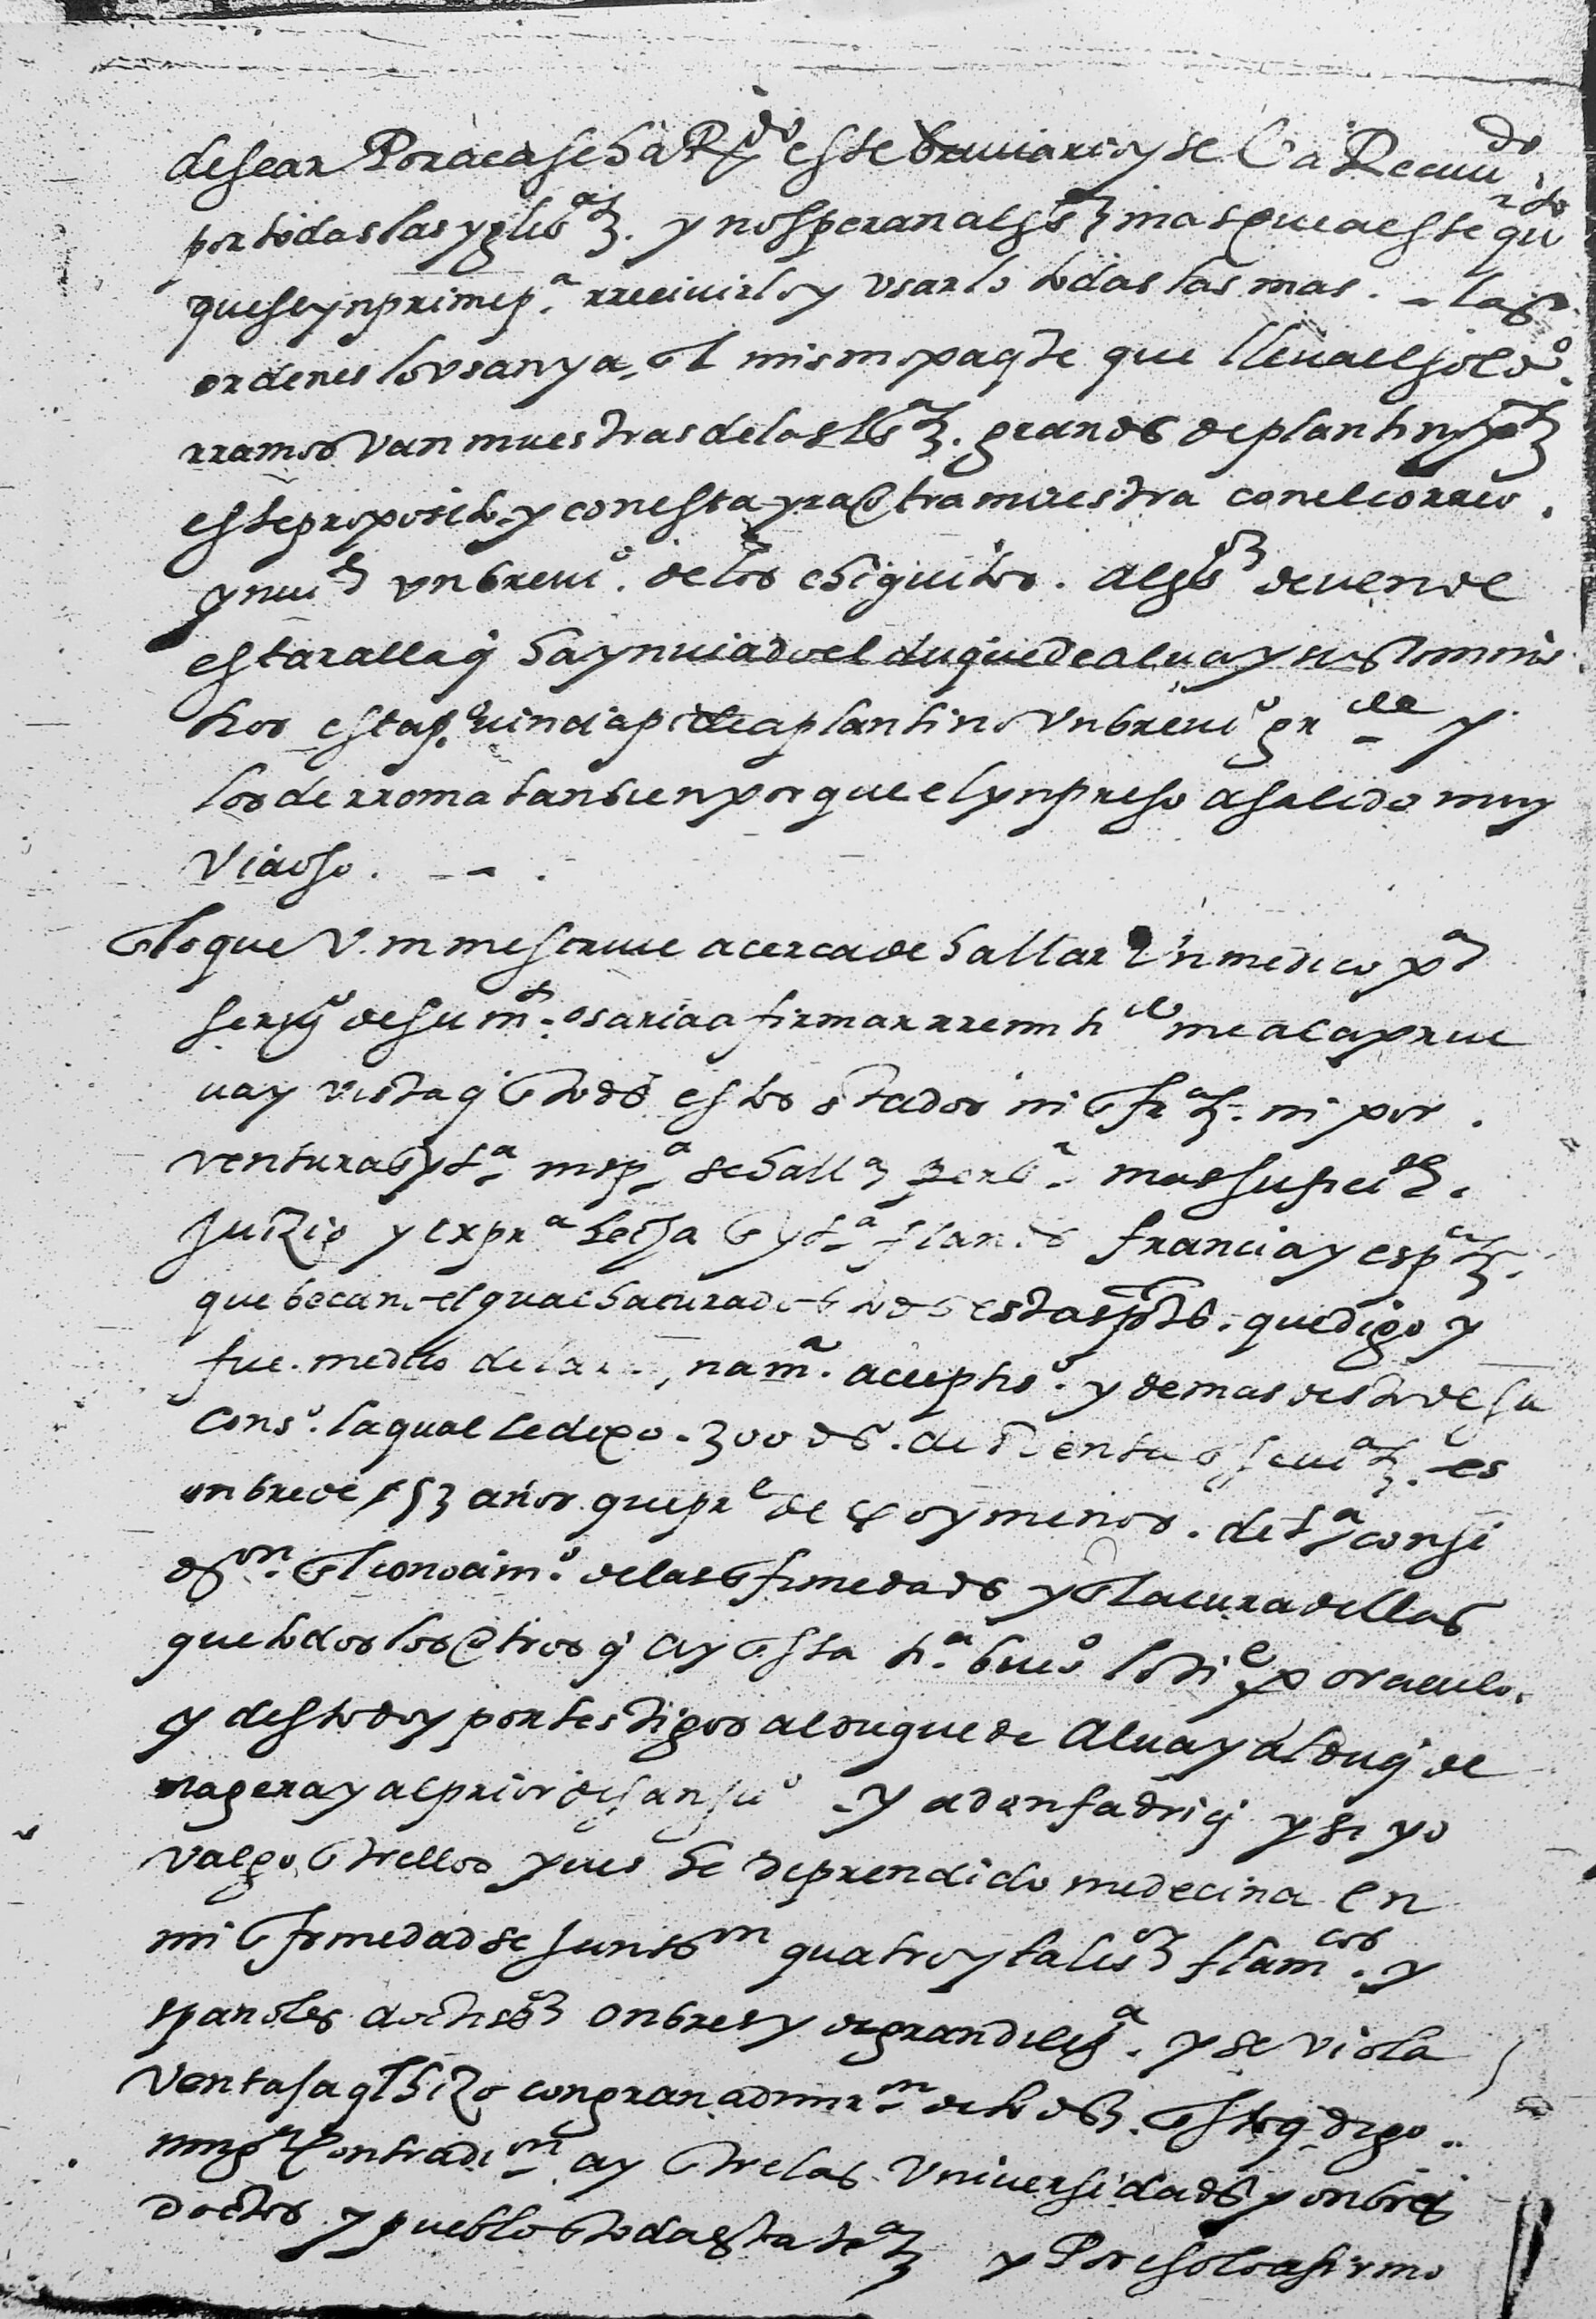 desear Por aca se ha Rdo este breuiario y se ha Reciuido
por todas las yglias. y no speran algs mas que a este qu
que se ynprime pa. rreciuirlo y vsarlo todas las mas. - las
ordenes lo vsan ya, el mismo paqte que lleua el solo
rramos van muestras de las lras. grandes de plantino pa
este proposito. y con esta yra otra muestra con el correo.
ynuie vn breuio. de los chiquitos. algs deuen de
estar alla q ha ynuiado el duque de alua y sus tomini
cos esta prouincia pide a plantino vn breuio grde y
los de rroma tanbien porque el ynpreso a salido muy
vicioso. - - .
En lo que V. m me scriue acerca de hallar vn medico pa
seruio de su md. osaria afirmar rremitiendome a la prue
ua y vista q en todos estos stados ni en fra. ni por
ventura en yta. ni spa. se halla persa. mas suficite.
juizio y expra hecha en yta. flandes francia y espa.
que becano el qual ha curado en todas estas ptes. que digo y
fue. medico de la rreyna ma. acceptso. y de mas desto de su
conso. la qual le dexo. 300 ds. de rrenta en su uida. es
onbre de 53 años que pre de 40 y menos. de ta consi
don. en el conocimo. de las enfermedades y en la cura dellas
que todos los otros q ay en esta tra bueo lo tiee por oraculo.
y desto doy por testigos al duque de Alua y al duq de
nagera y al prior de san juo - y a don fadriq y si yo
valgo entrellos pues he deprendido medecina en
mi enfermedad se juntaron quatro ytalianos flamcos. y
spanoles doctisos onbres y de gran diliga. y se vio la
ventaja ql hizo con gran admiron de todos. en esto q digo.
ninga contradion ay entre las vniuersidades y onbres
doctos y pueblo en toda esta tra y Por eso lo afirmo